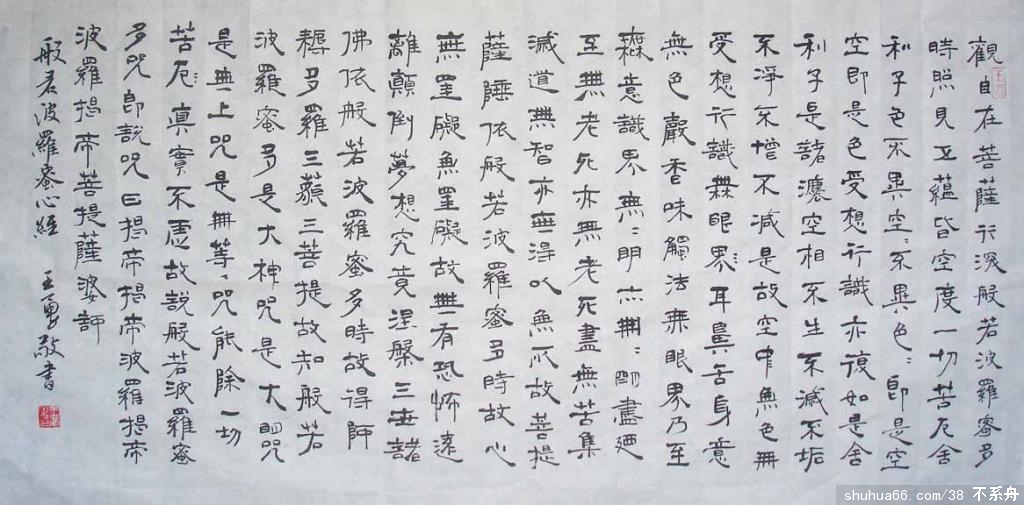 觀自在菩薩行深般若波羅蜜多
時照見五蘊皆空度一切苦厄舍
利子色不異空:不異色:即是空
空即是色受想行識亦復如是舍
利子是諸灋空相不生不滅不垢
不淨不增不減是故空中無色無
受想行識無眼界:耳鼻舌身意
無色聲香味觸法無眼界乃至
無意識界無:明亦無:明盡廼
至無老死亦無老死盡無苦集
滅道無智亦無得以無所故菩提
薩埵依般若波羅蜜多時故心
無罣礙無罣礙故無有恐怖遠
離顛倒夢想究竟涅槃三世諸
佛依般若波羅蜜多時故得阿
耨多羅三藐三菩提故知般若
波羅蜜多是大神咒是大明咒
是無上咒是無等:咒能除一切
苦厄真實不虛故說般若波羅蜜
多咒即說咒曰揭帝揭帝波羅揭帝
波羅揭帝菩提薩婆訶
般若波羅蜜心經 王勇敬書
shuhua66.com/38 不系舟